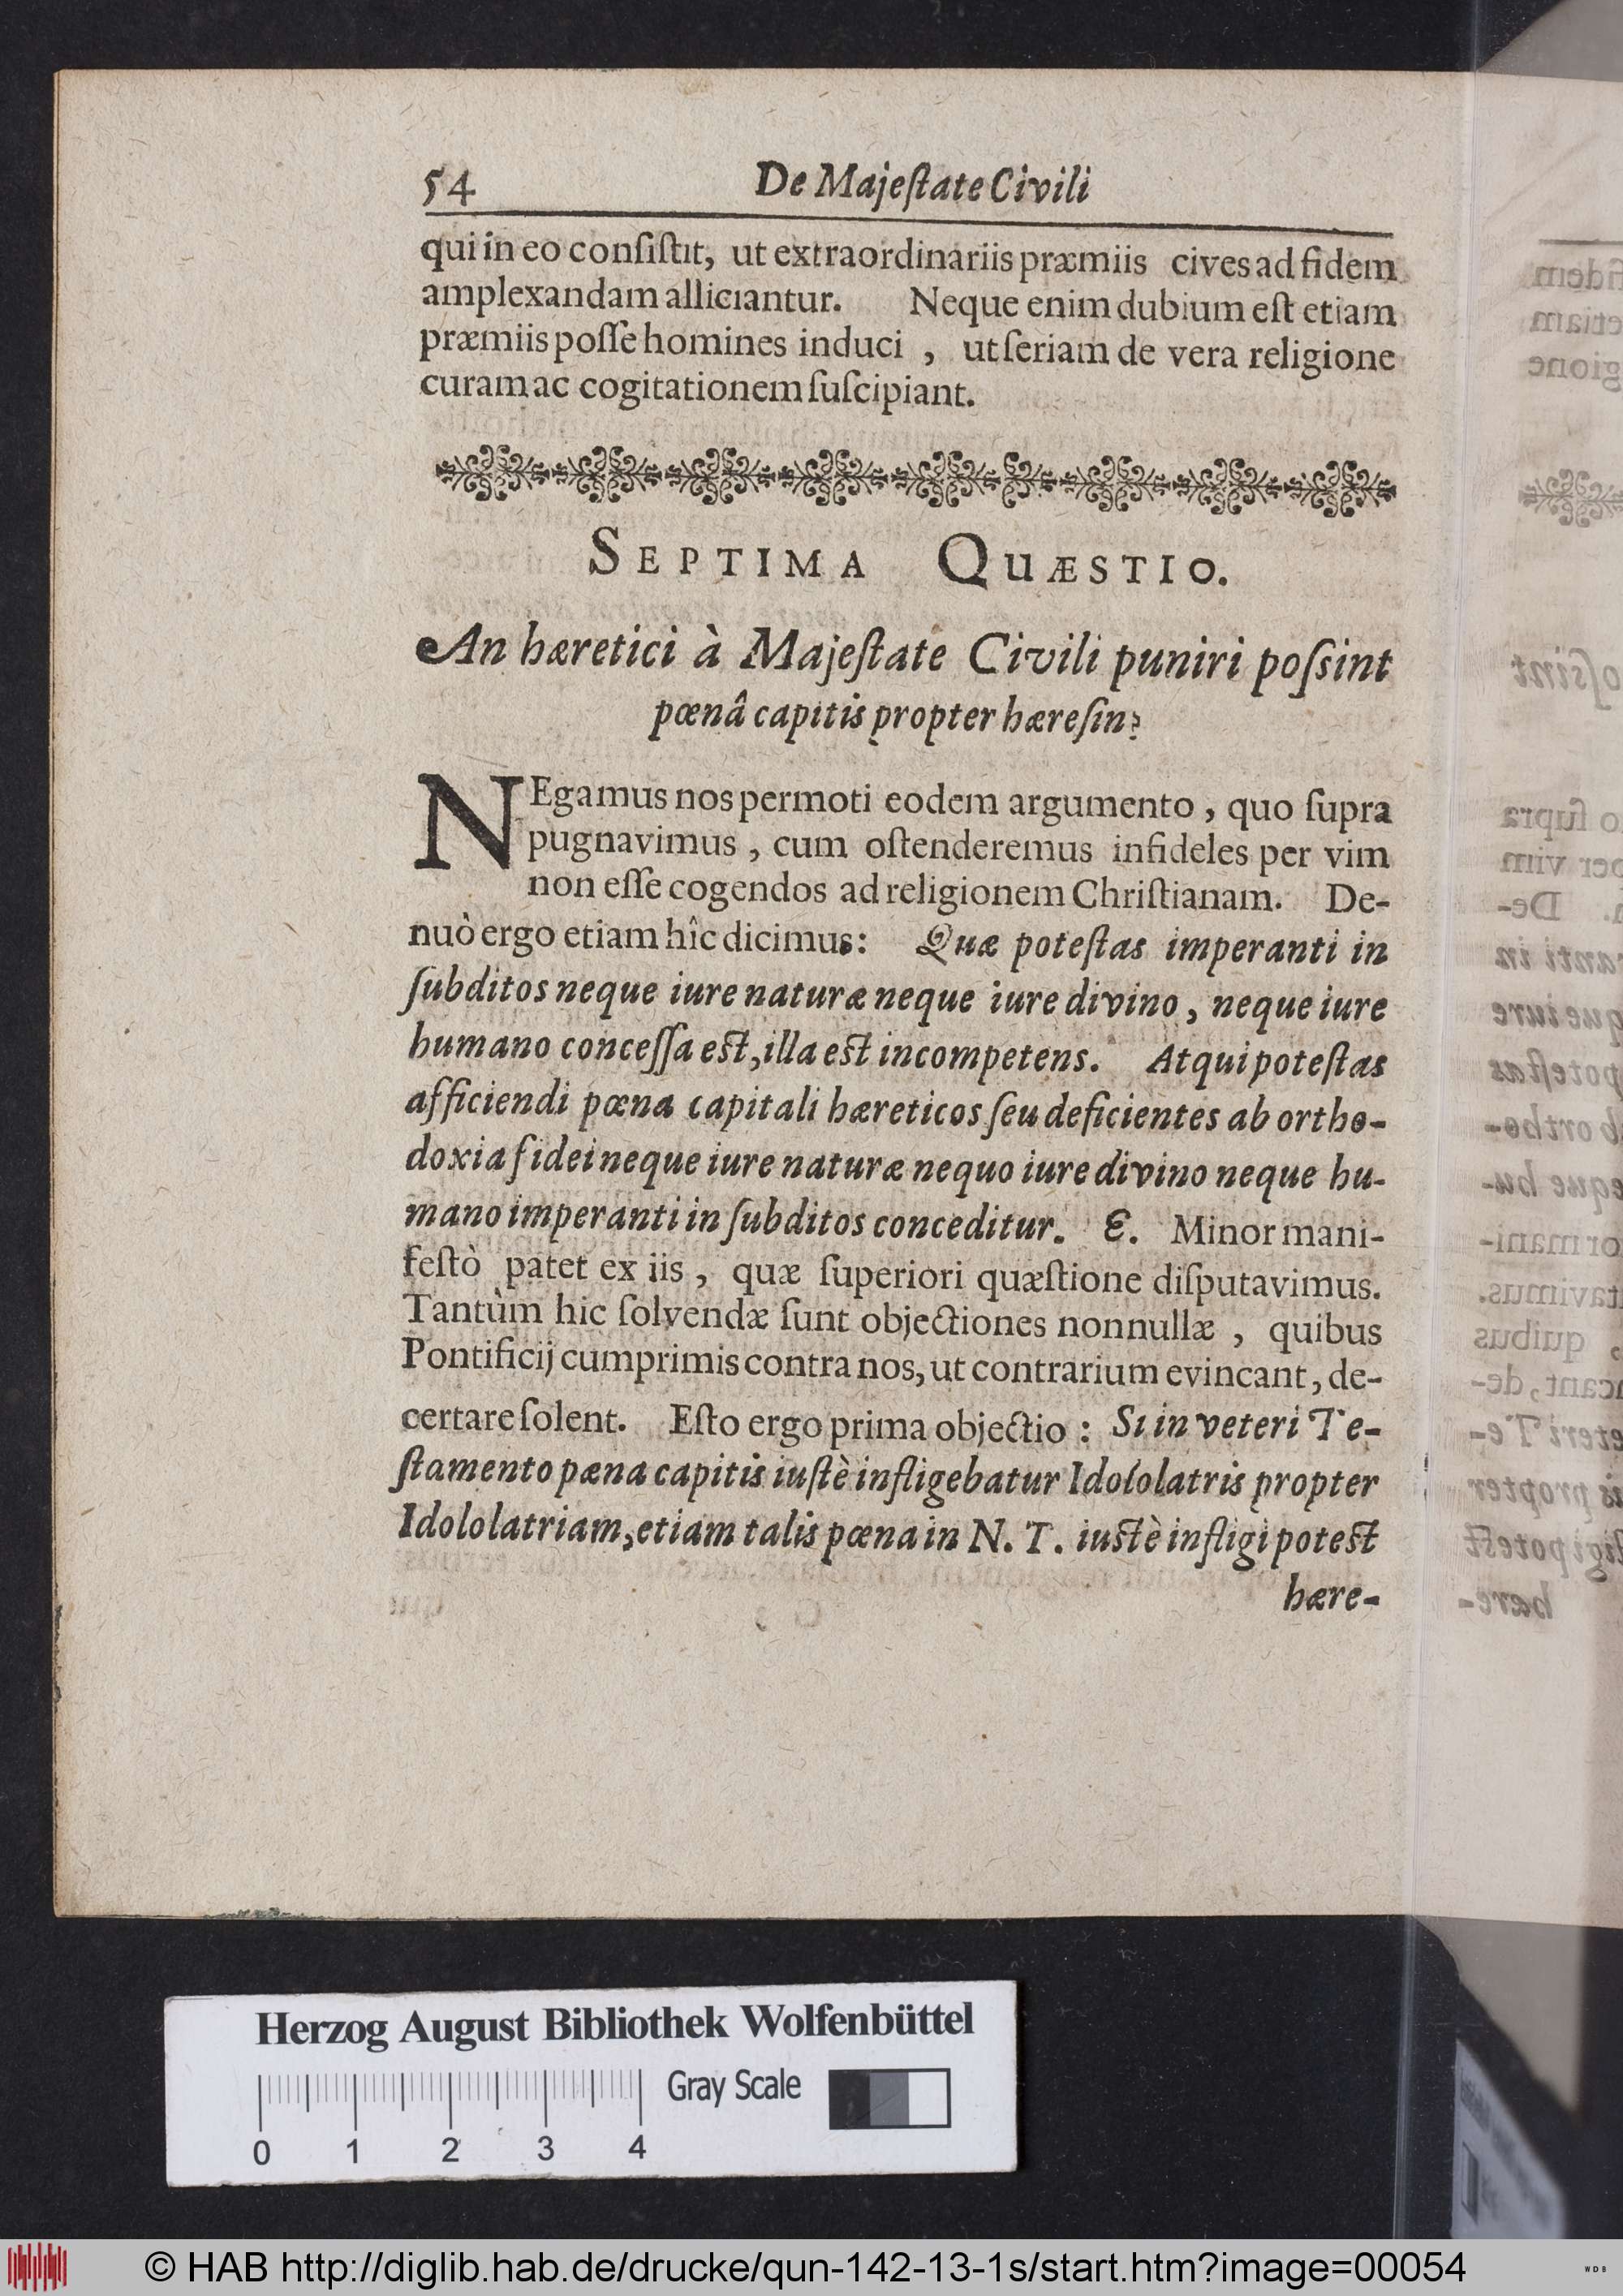 54 De Majeſtate Civili
qui in eo conſiſtit, ut extraordinariis præmiis cives ad fidem
amplexandam alliciantur. Neque enim dubium eſt etiam
præmiis poſſe homines induci , ut ſeriam de vera religione
curam ac cogitationem ſuſcipiant.
SEPTIMA QUÆSTIO.
An hæretici à Majeſtate Civili puniri poſsint
pœnâ capitis propter hæreſin?
NEgamus nos permoti eodem argumento , quo ſupra
pugnavimus , cum oſtenderemus infideles per vim
non eſſe cogendos ad religionem Chriſtianam. De-
nuò ergo etiam hîc dicimus: Quæ poteſtas imperanti in
ſubditos neque iure naturæ neque iure divino , neque iure
humano conceſſa eſt, illa eſt incompetens. Atqui poteſtas
afficiendi pœna capitali hæreticos ſeu deficientes ab ortho-
doxia fidei neque iure naturæ nequo iure divino neque hu-
mano imperanti in ſubditos conceditur. E. Minor mani-
feſtò patet ex iis , quæ ſuperiori quæſtione diſputavimus.
Tantùm hic ſolvendæ ſunt objectiones nonnullæ , quibus
Pontificij cumprimis contra nos, ut contrarium evincant, de-
certare ſolent. Eſto ergo prima objectio : Si in veteri Te-
ſtamento pæna capitis iuſtè infligebatur Idololatris propter
Idololatriam, etiam talis pœna in N. T. iuſtè infligi poteſt
hære-
Herzog August Bibliothek Wolfenbüttel
Gray Scale
0 1 2 3 4
© HAB http://diglib.hab.de/drucke/qun-142-13-1s/start.htm?image=00054
WDB